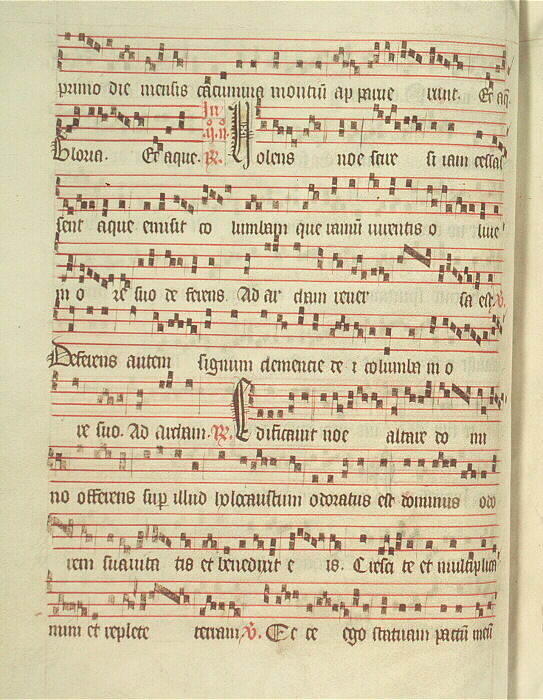 primo die mensis cacumina montiū ap parue runt. Et aq̄.
Gloria. Et aque. R. Volens noe scire si iam cessas
sent aque emisit co lumbam que ramū uirentis o liue
in o re suo de ferens. Ad ar cham reuer sa est. V.
Deferens autem signum clementie de i columba in o
re suo. Ad archam. R. Edificauit noe altare do mi
no offerens sup illud holocaustum odoratus est dominus odo
rem suauita tis et benedixit e is. Cresci te et multiplica
mini et replete terram V. Ec ce ego statuam pactū meū